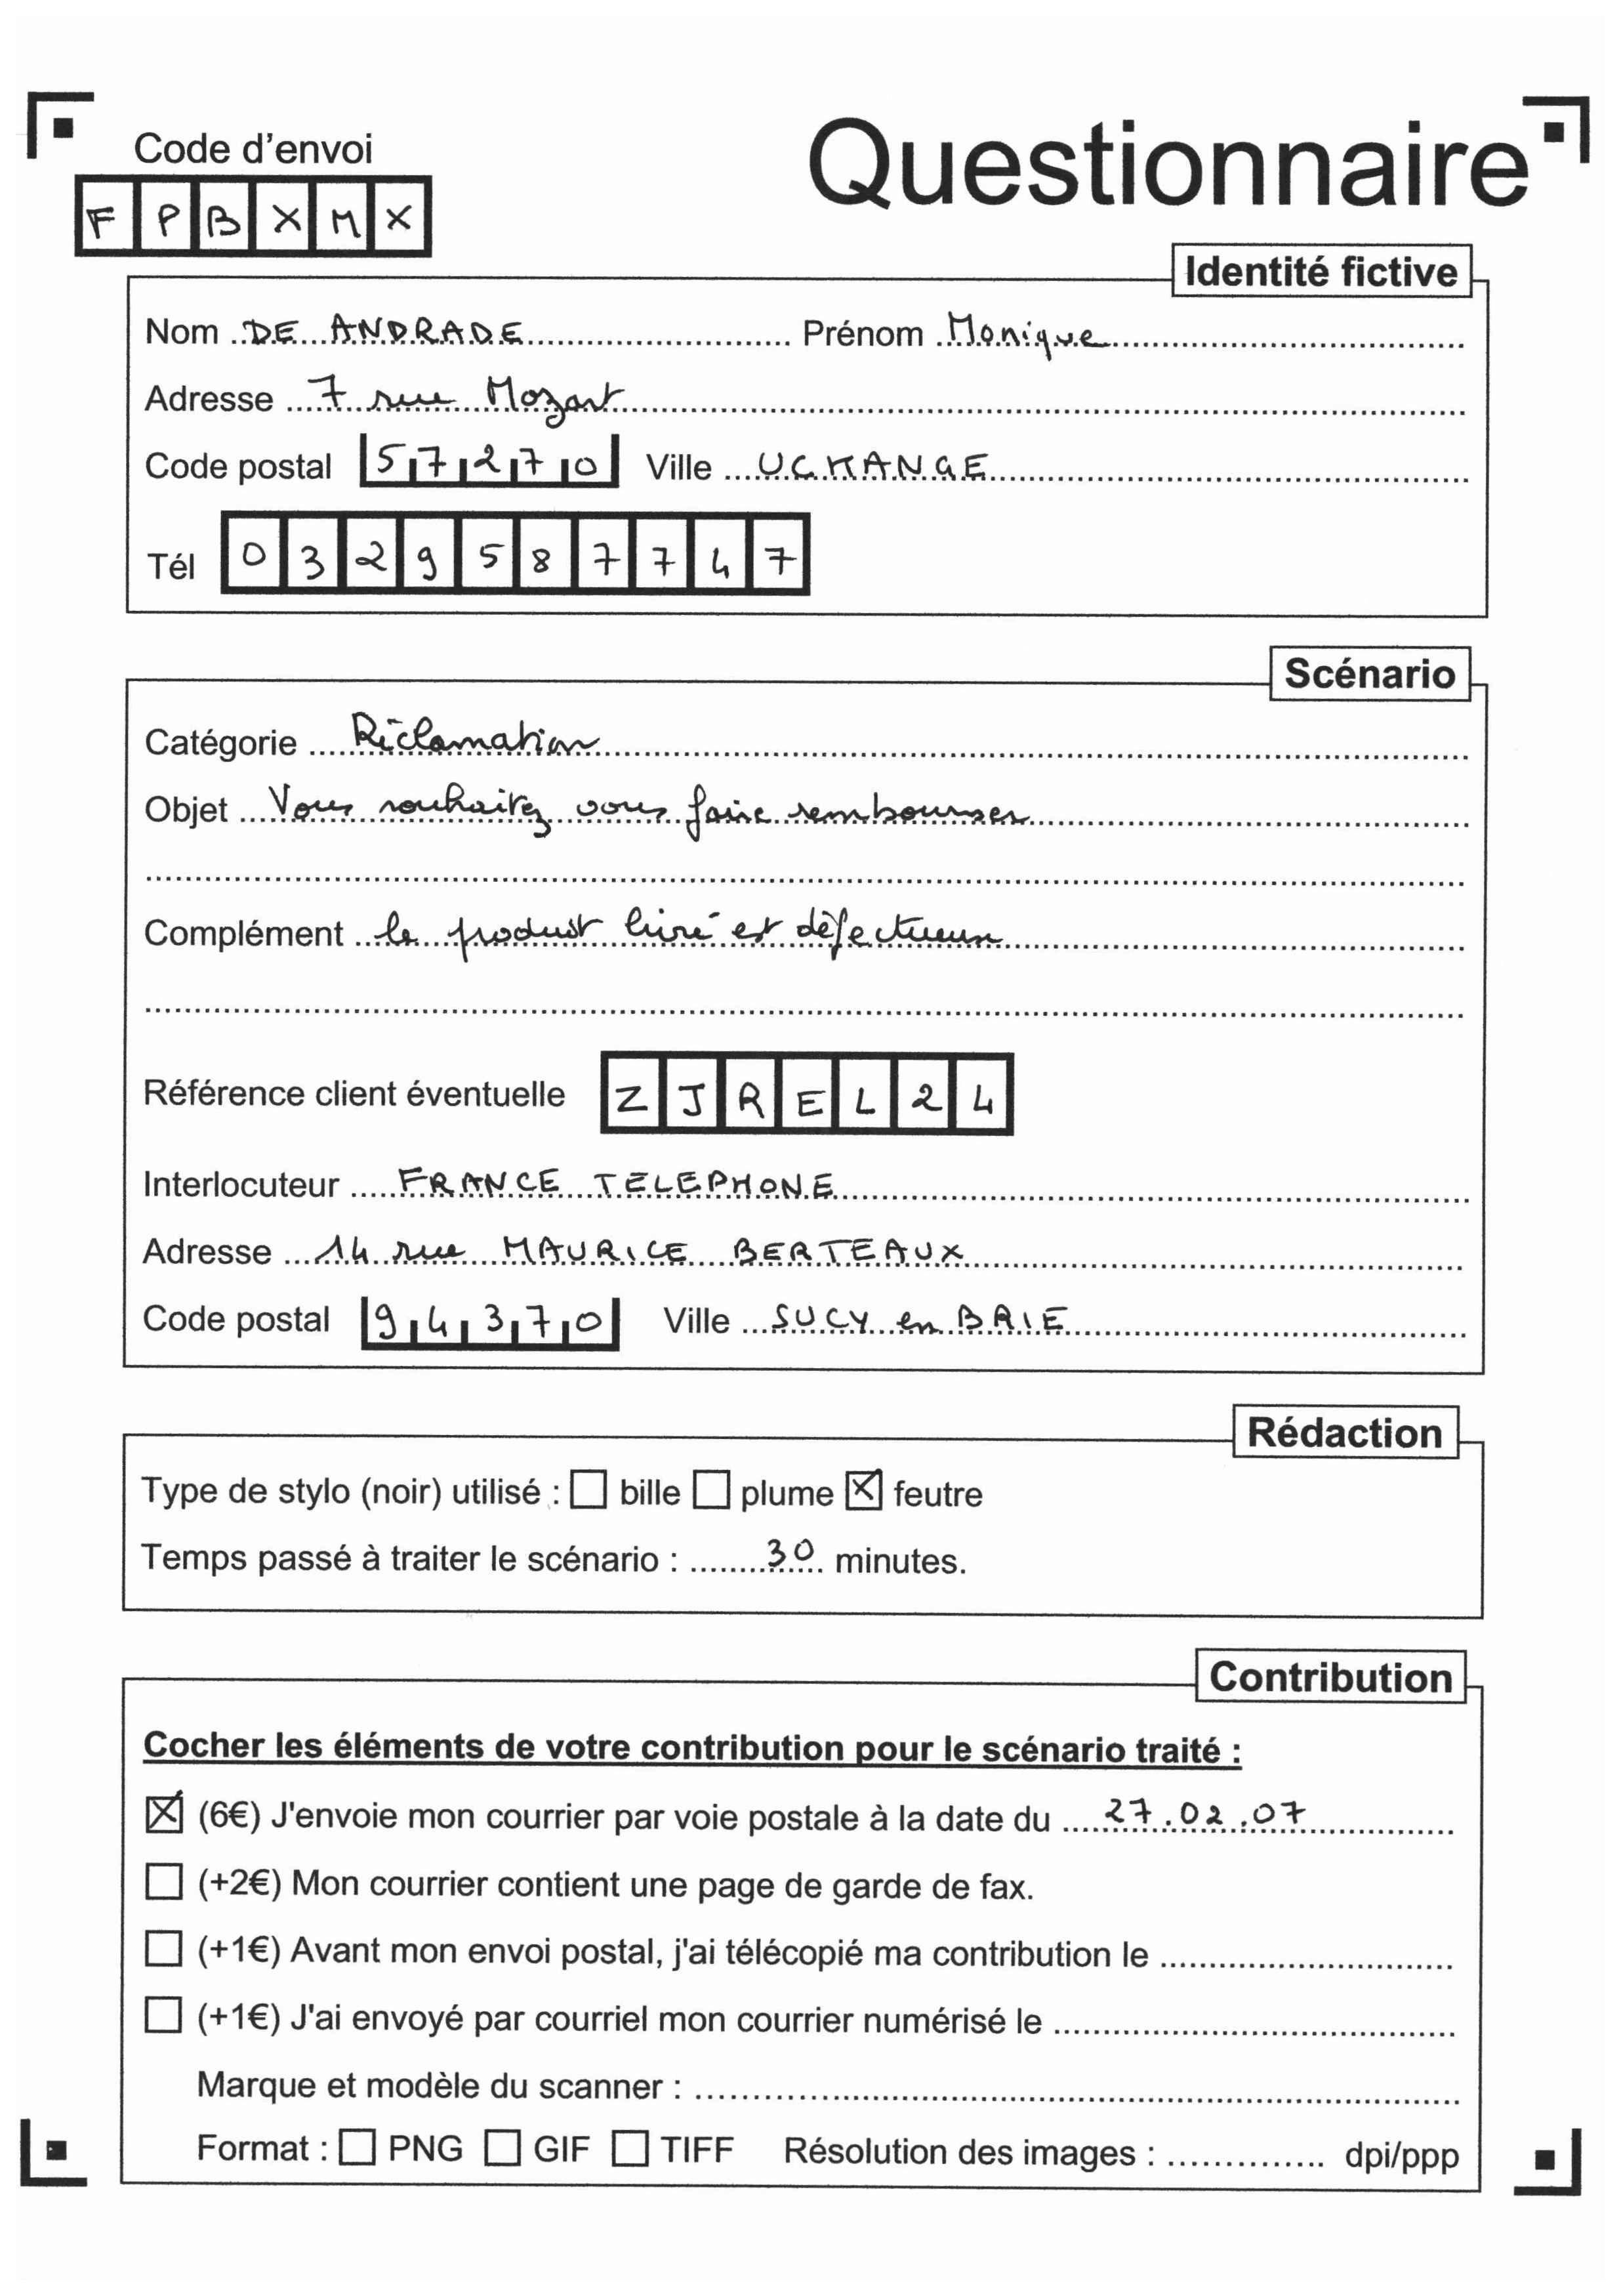 Code d'envoi
Questionnaire
F P B X M X
Identité fictive
Nom DE ANDRADE Prénom Monique
Adresse 7 rue Mozart
Code postal 57270 Ville UCKANGE
Tél 0329587747
Scénario
Catégorie Réclamation
Objet Vous souhaitez vous faire rembourser
Complément le produit livré est défectueux
Référence client éventuelle ZJREL24
Interlocuteur FRANCE TELEPHONE
Adresse 14 rue MAURICE BERTEAUX
Code postal 94370 Ville SUCY en BRIE
Rédaction
Type de stylo (noir) utilisé : ☐ bille ☐ plume ☒ feutre
Temps passé à traiter le scénario : 30 minutes.
Contribution
Cocher les éléments de votre contribution pour le scénario traité :
☒ (6€) J'envoie mon courrier par voie postale à la date du 27.02.07
☐ (+2€) Mon courrier contient une page de garde de fax.
☐ (+1€) Avant mon envoi postal, j'ai télécopié ma contribution le
☐ (+1€) J'ai envoyé par courriel mon courrier numérisé le
Marque et modèle du scanner :
Format : ☐ PNG ☐ GIF ☐ TIFF Résolution des images : dpi/ppp